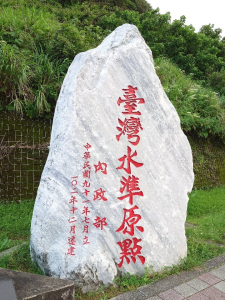 臺灣水準原點
內政部
中華民國九十一年七月立
一〇二年十二月遷建